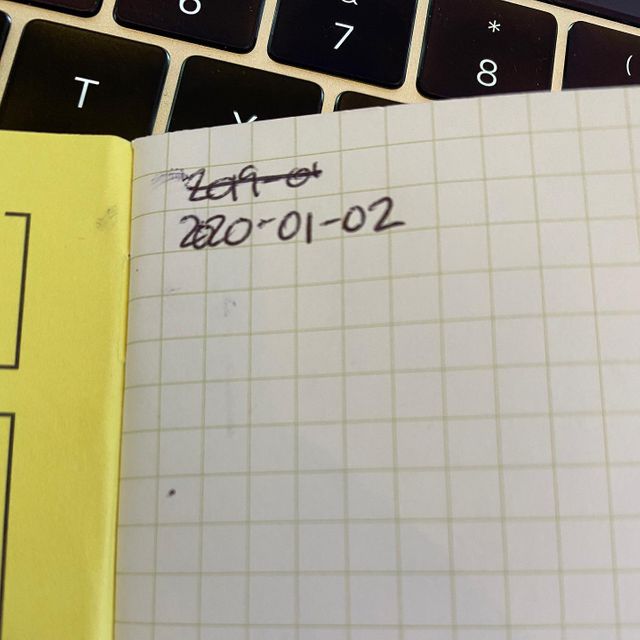 6
&
7
*
8
(
T
Y
2019-01
2020-01-02